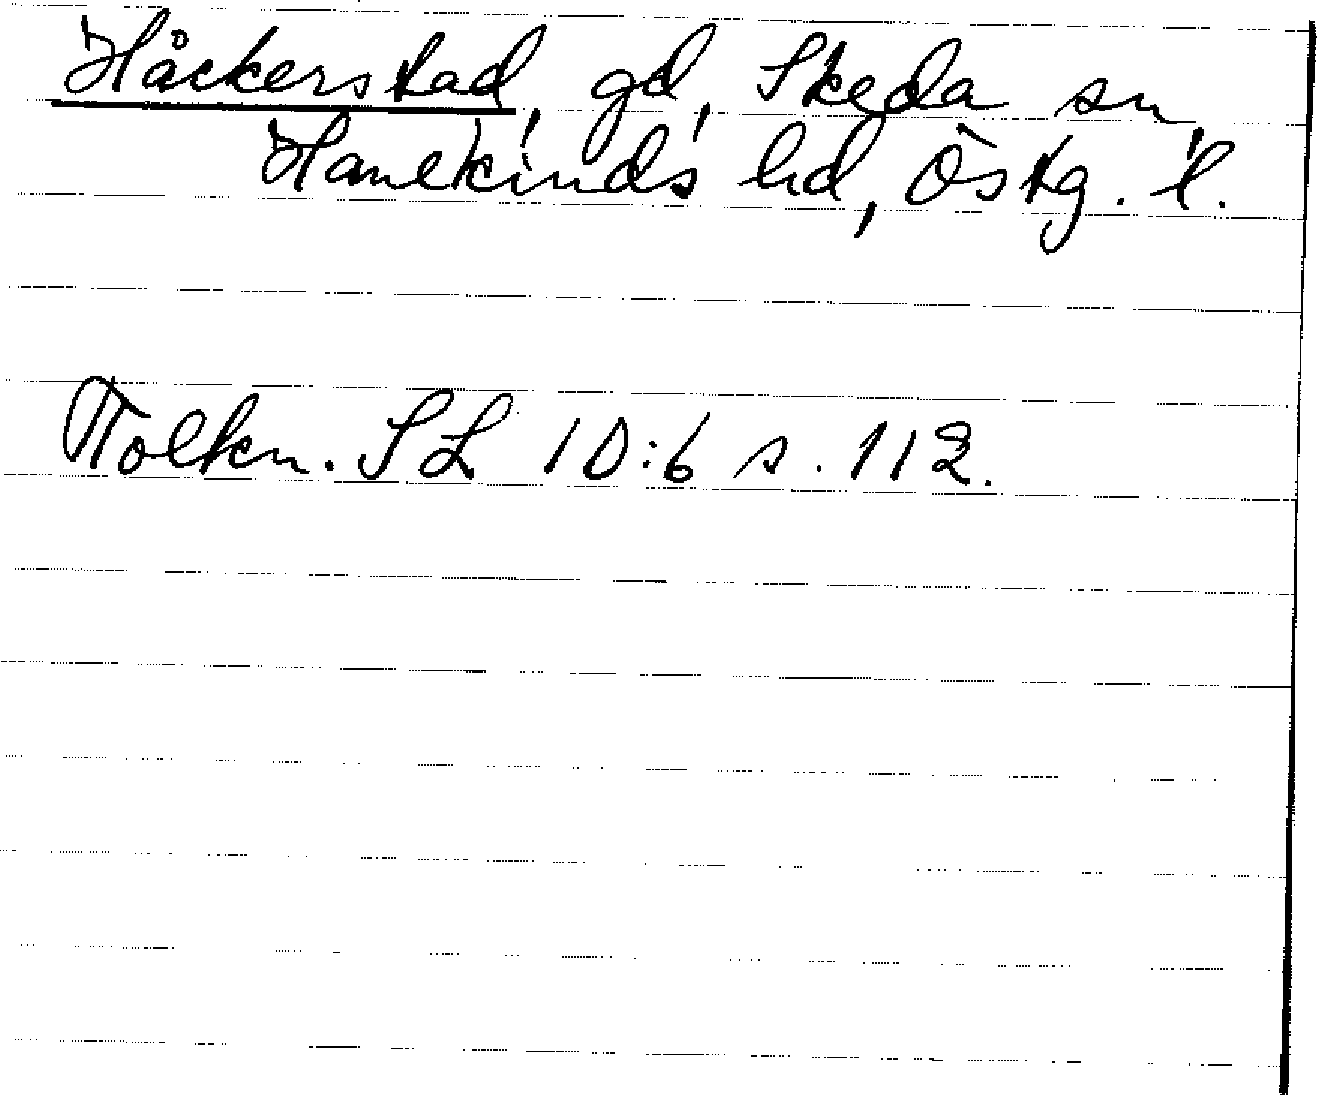 Håckerstad, gd, Skeda sn,
Hanekinds hd, Östg. l.
Tolkn. SL 10:6 s. 112.